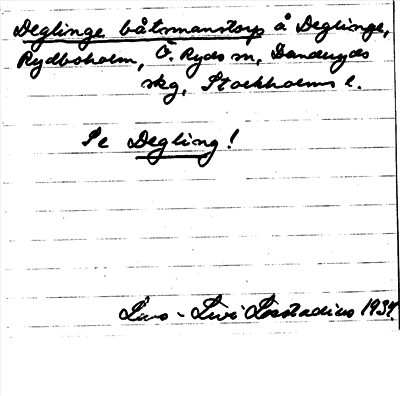 Deglinge båtsmanstorp å Deglinge,
Rydboholm, Ö. Ryds sn, Danderyds
skg, Stockholms l.
Se Degling!
Lars-Levi Læstadius 1937.